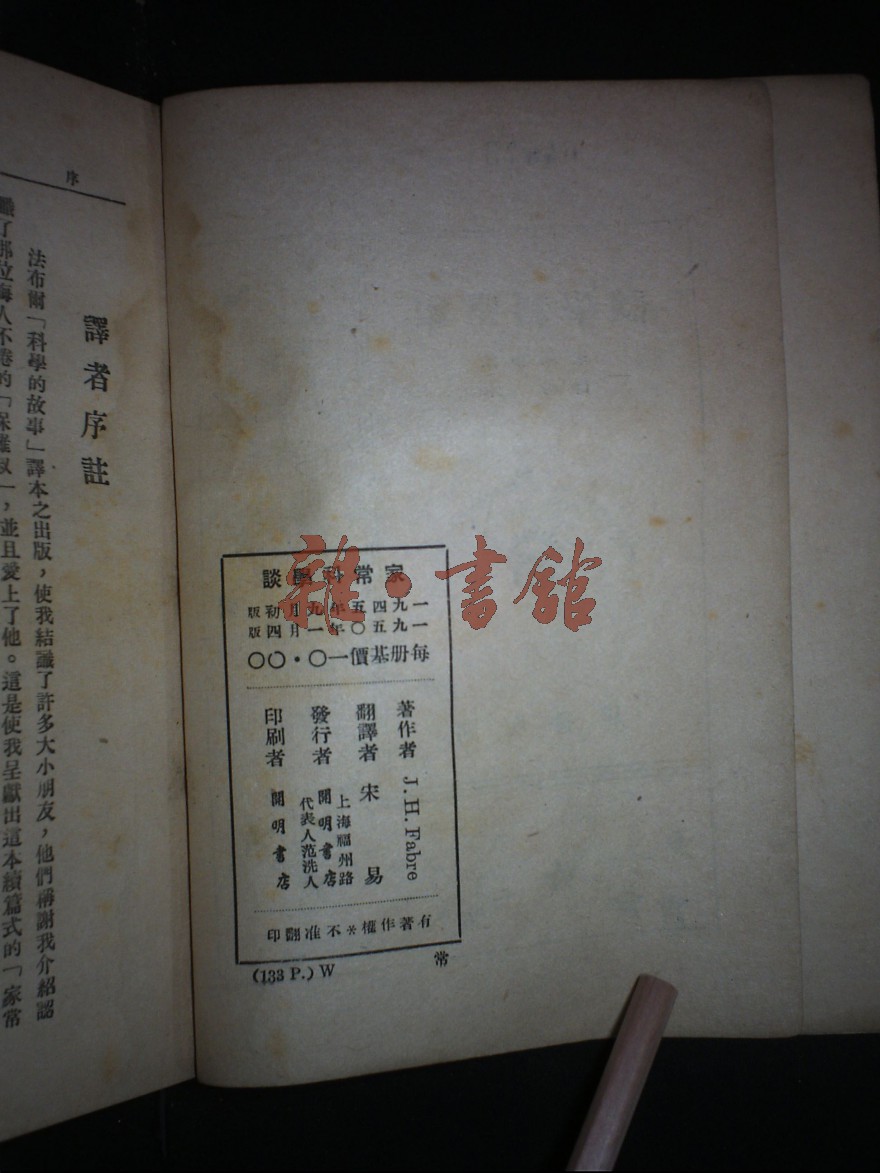 家常科學談
一九四五年九月初版
一九五〇年一月四版
每册基價一〇・〇〇
著作者 J. H. Fabre
翻譯者 宋易
發行者 上海福州路
開明書店
代表人范洗人
印刷者 開明書店
有著作權※不准翻印
(133 P.) W 常
序
譯者序註
法布爾「科學的故事」譯本之出版，使我結識了許多大小朋友，他們稱謝我介紹認
識了那位誨人不倦的「保羅叔」，並且愛上了他。這是使我呈獻出這本續篇式的「家常
雜・書館